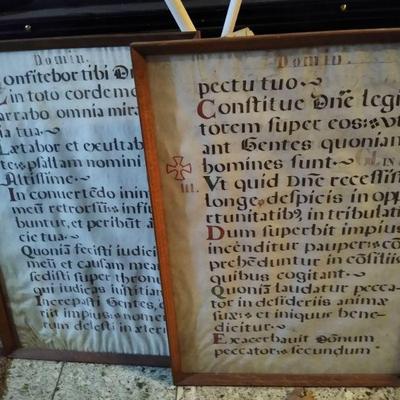 Domin.
Confitebor tibi Dñ
in toto corde meo
arrabo omnia mira
ia tua.
Lætabor et exultab
te: psallam nomini
Altissime.
In convertēdo inim
meū retrorsū: infir
buntur, et peribūt à
cie tua.
Quoniā fecisti judiciū
meū et causam mea
sedisti super thronū
qui judicas justitiam
Increpasti Gentes, e
riit impius: nomen
rum delesti in æterr
Domin.
pectu tuo.
Constitue Dñe legis
torem super eos: ut
ant Gentes quonian
homines sunt. IN
III. Ut quid Dñe recessisti
longe, despicis in opp
rtunitatib9, in tribulati
Dum superbit impius
incēnditur pauper: cō
prehēduntur in cōsiliis
quibus cogitant.
Quoniā laudatur pecca
tor in desideriis animæ
suæ: et iniquur bene-
dicitur.
Exacerbavit Dōnum
peccator: secundum